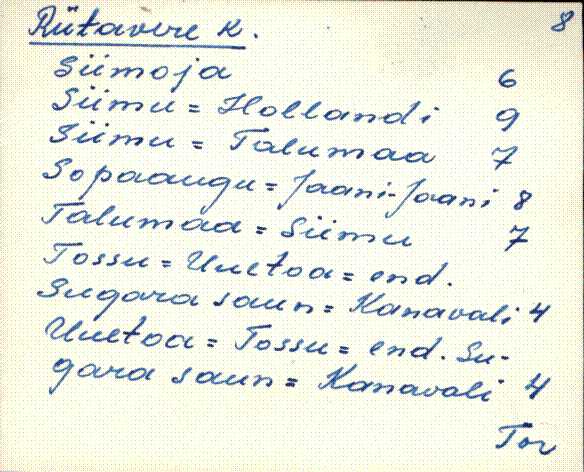 Rütavere k. 8
Siimoja 6
Siimu = Hollandi 9
Siimu = Talumaa 7
Sopaaugu = Jaani-Jaani 8
Talumaa = Siimu 7
Tossu = Uuetoa = end.
Sugara saun = Kanavali 4
Uuetoa = Tossu = end. Su-
gara saun = Kanavali 4
Tor